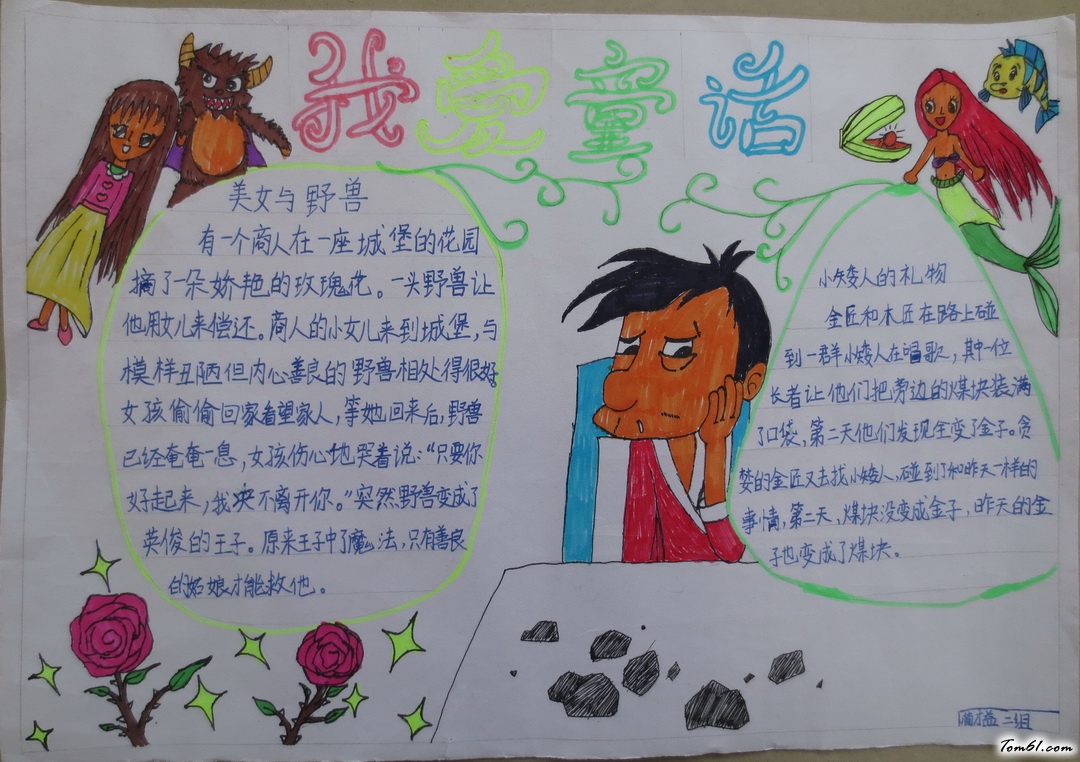 我爱童话
美女与野兽
有一个商人在一座城堡的花园
摘了一朵娇艳的玫瑰花。一头野兽让
他用女儿来偿还。商人的小女儿来到城堡，与
模样丑陋但内心善良的野兽相处得很好，
女孩偷偷回家看望家人，等她回来后，野兽
已经奄奄一息，女孩伤心地哭着说：“只要你
好起来，我决不离开你。”突然野兽变成了
英俊的王子。原来王子中了魔法，只有善良
的姑娘才能救他。
小矮人的礼物
金匠和木匠在路上碰
到一群小矮人在唱歌，其中一位
长者让他们把旁边的煤块装满
了口袋，第二天他们发现全变了金子。贪
婪的金匠又去找小矮人，碰到了和昨天一样的
事情，第二天，煤块没变成金子，昨天的金
子也变成了煤块。
二组
Tom61.com